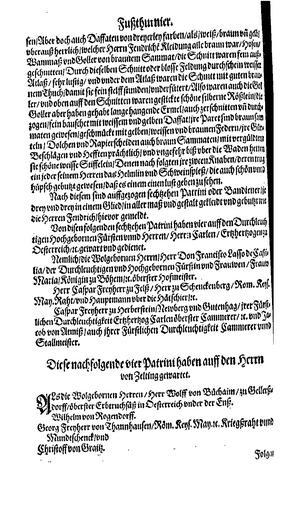 Fußthurnier.
sen/Aber doch auch Daffaten von dreyerley farben/als/weiß/braun vñ gelb/
uberauß herrlich/welcher Herrn Fendrichs Kleidung alle braun war/Hosen/
Wammaß und Goller von braunem Sammat/die Schnitt waren fein auß-
geschnitten/Durch dieselben Schnitt oder blosse Feldung durchschein weisser
Atlaß/sehr lustig/und under dem Atlaß waren die Schnitt mit guten brau-
nem Thuch/damit sie fein steiff stunden/underfütert/Also waren auch die Gol-
ler/und oben auff den Schnitten waren gestickte schöne silberne Rößlein/die
Goller aber haben gehabt lange hangende Ermel/auch zerschnitten uñ durch-
zogen/fein bauschet mit weissen und gelben Daffat/
maten gewesen/geschmückt mit gelben/weissen und braunen Federn/
Dolchen und Rapierscheiden auch braun Sammaten/mit vergüldten
Beschlägen und Hefften prächtlich/und ungefehr biß uber die Waden hetten
sie schöne weisse Stiffelein/Denen nach folgten jre zween Knaben/deren trug
ein jeder seinem Herrn das Helmlin und Schweinspieß/die auch schön und
hüpsch gebutzt gewesen/daß es einem ein lust geben zu sehen.
Nach diesen sind auffgezogen sechtzehen Patrini oder Bandierer/je
drey und drey in einem Glied/in aller maß und gestalt gekleidt und gebutzt wie
die Herren Fendrich/hievor gemeldt.
Von diesen folgenden sechtzehen Patrini haben vier auff den Durchleuch-
tigen Hochgebornen Fürsten unnd Herren/Herrn Carlen/Ertzhertzogen zu
Oesterreich/rc. gewartet und gedienet.
Nemlich/die Wolgebornen Herrn/Herr Don Francisco Lasso de Casti-
lia/der Durchleuchtigen und Hochgebornen Fürstin und Frauwen/Frauw
Maria/Königin zu Böhem/rc. oberster Hofmeister.
Herr Caspar Freyherr zu Felß/Herr zu Schenckenberg/Röm. Keys.
May. Raht/und Hauptmann uber die Hätschier/rc.
Caspar Freyherr zu Herberstein/Newberg und Gutenhag/jrer Fürst-
lichen Durchleuchtigkeit Ertzhertzog Carlen oberster Cammerer/rc. und
und auch jhrer Fürstlichen Durchleuchtigkeit Cammerer und
Stallmeister.
Diese nachfolgende vier Patrini haben auff den Herrn
von Zelting gewartet.
Als die Wolgebornen Herren/Herr Wolff von Büchaim/zu Gellerß-
dorff/oberster Erbtruchsäß in Oesterreich under der Enß.
Wilhelm von Rogendorff.
Georg Freyherr von Thannhausen/Röm. Keys. May. rc. Kriegßraht und
Mundschenck/und
Christoff von Graitz.
Folgen